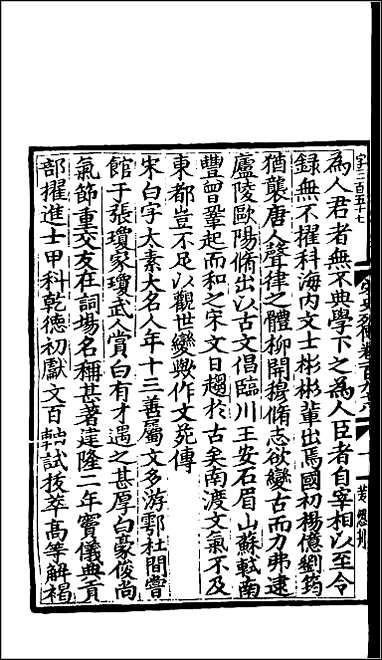 字二百五七
宋史列傳卷百九十八
一
為人君者無不典學下之為人臣者自宰相以至令
録無不擢科海内文士彬彬輩出焉國初楊億劉筠
猶襲唐人聲律之體柳開穆脩志欲變古而力弗逮
廬陵歐陽脩出以古文倡臨川王安石眉山蘇軾南
豐曾鞏起而和之宋文日趨於古矣南渡文氣不及
東都豈不足以觀世變歟作文苑傳
宋白字太素大名人年十三善屬文多游鄠杜間嘗
館于張瓊家瓊武人賞白有才遇之甚厚白豪俊尚
氣節重交友在詞場名稱甚著建隆二年竇儀典貢
部擢進士甲科乾德初獻文百軸試拔萃高等解褐